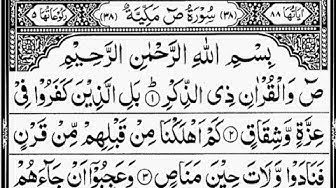 اٰيَاتُهَا ٨٨ (٣٨) سُوْرَةُ صٓ مَكِّيَّةٌ (٣٨) رُكُوْعَاتُهَا ٥
بِسْمِ اللّٰهِ الرَّحْمٰنِ الرَّحِيْمِ
صٓ وَالْقُرْاٰنِ ذِى الذِّكْرِ ۝١ بَلِ الَّذِيْنَ كَفَرُوْا فِىْ
عِزَّةٍ وَّشِقَاقٍ ۝٢ كَمْ اَهْلَكْنَا مِنْ قَبْلِهِمْ مِّنْ قَرْنٍ
فَنَادَوْا وَّلَاتَ حِيْنَ مَنَاصٍ ۝٣ وَعَجِبُوْٓا اَنْ جَآءَهُمْ